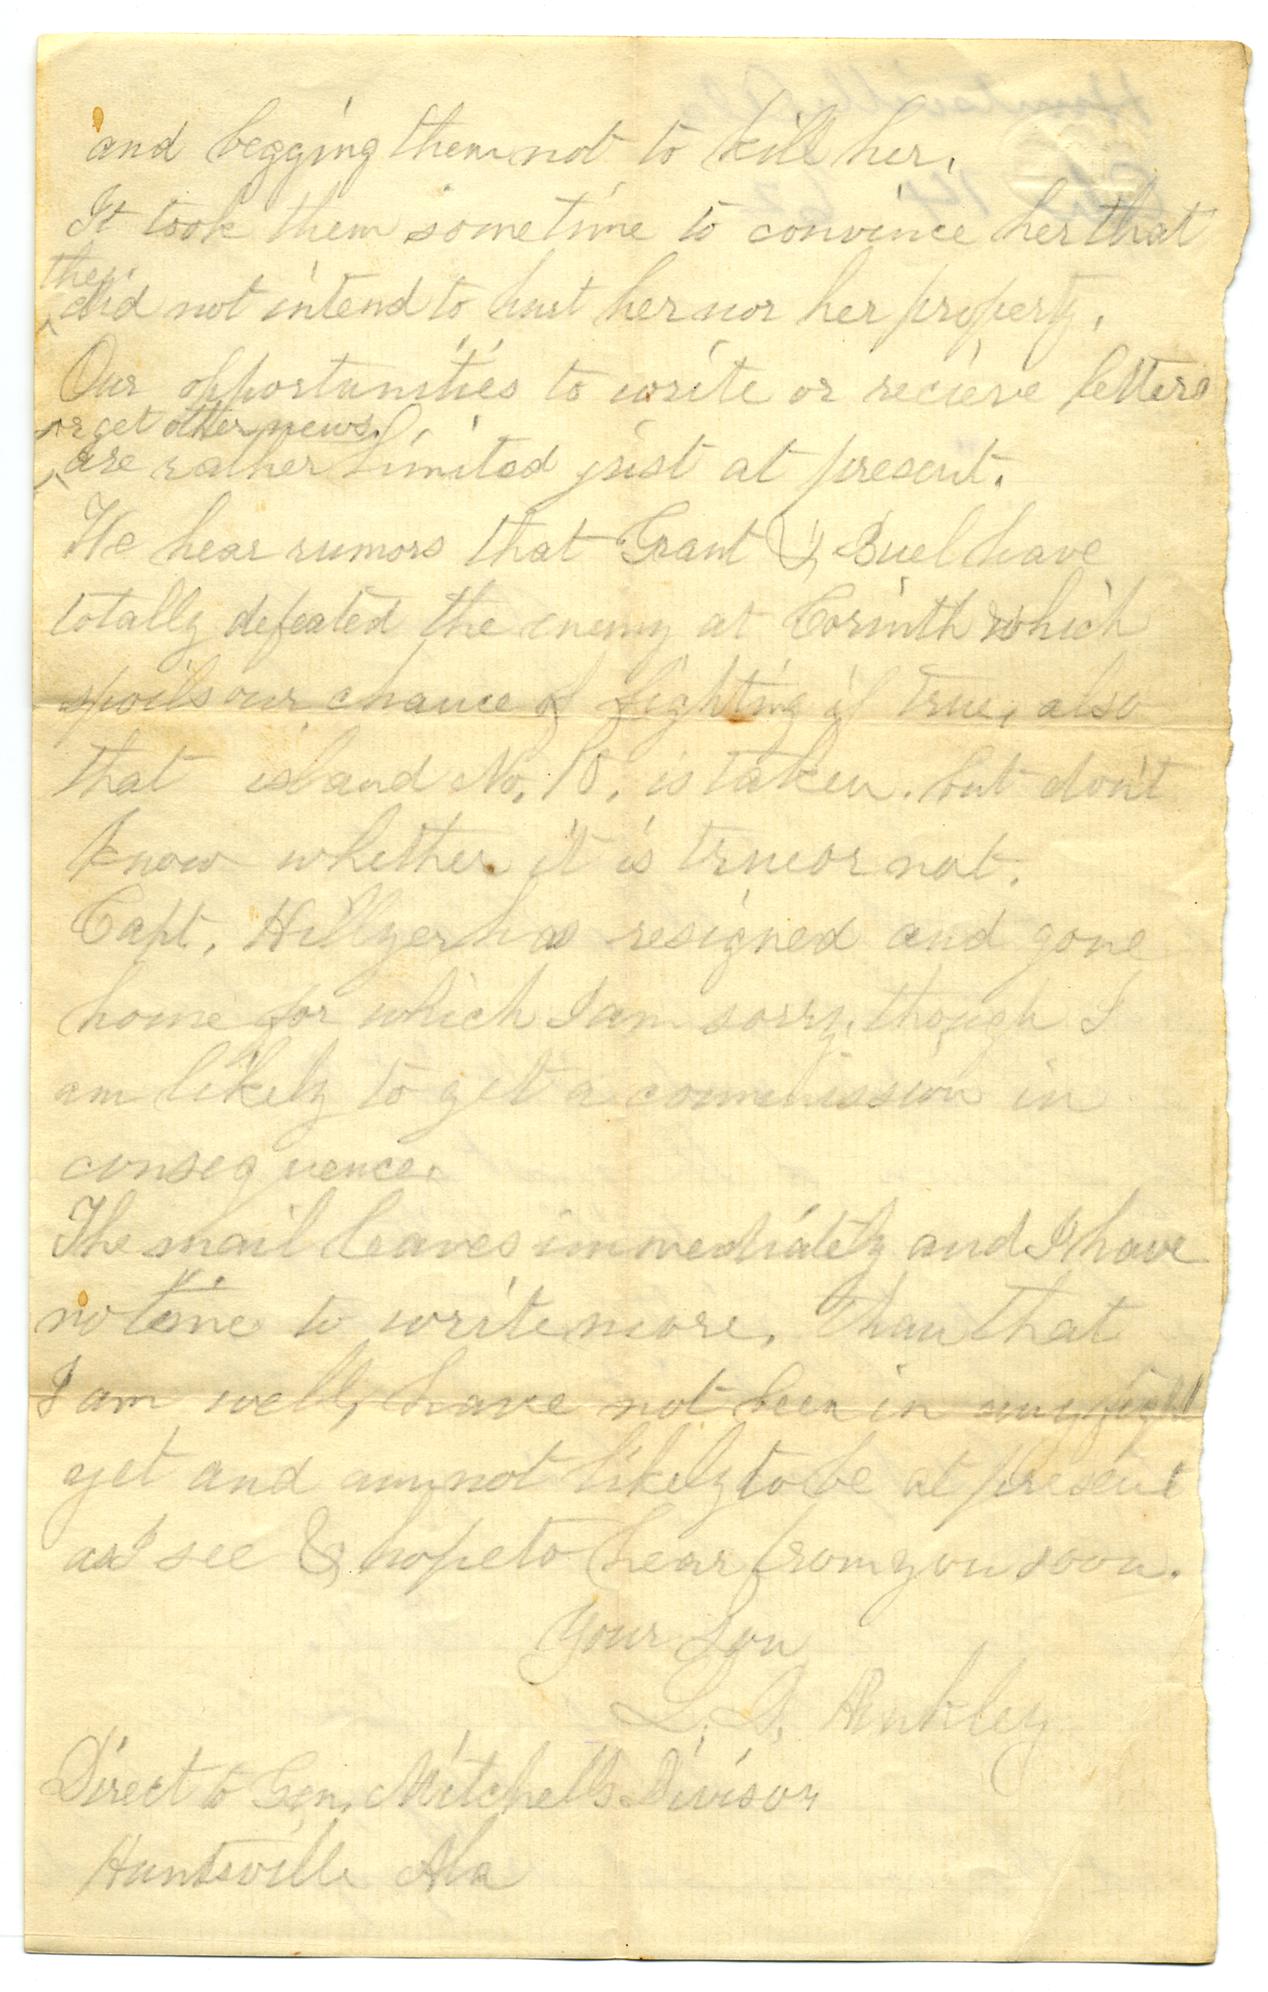 and begging them not to kill her.
It took them sometime to convince her that
they
did not intend to hurt her nor her property.
Our opportunities to write or recieve letters
or get other news
are rather limited just at present.
We hear rumors that Grant & Buel have
totally defeated the enemy at Corinth which
spoils our chance of fighting if true, also
that island No. 10. is taken. but don't
know whether it is true or not.
Capt. Hillyer has resigned and gone
home for which I am sorry, though I
am likely to get a commission in
consequence.
The mail leaves immediately and I have
no time to write more, than that
I am well, have not been in any fight
yet and am not likely to be at present
as I see & hope to hear from you soon.
Your Son
L. D.
Direct to Gen. Mitchells Divison
Huntsville Ala